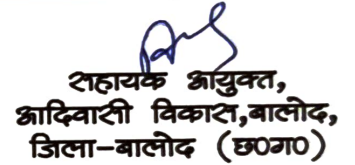 सहायक आयुक्त,
आदिवासी विकास,बालोद,
जिला-बालोद (छ०ग०)